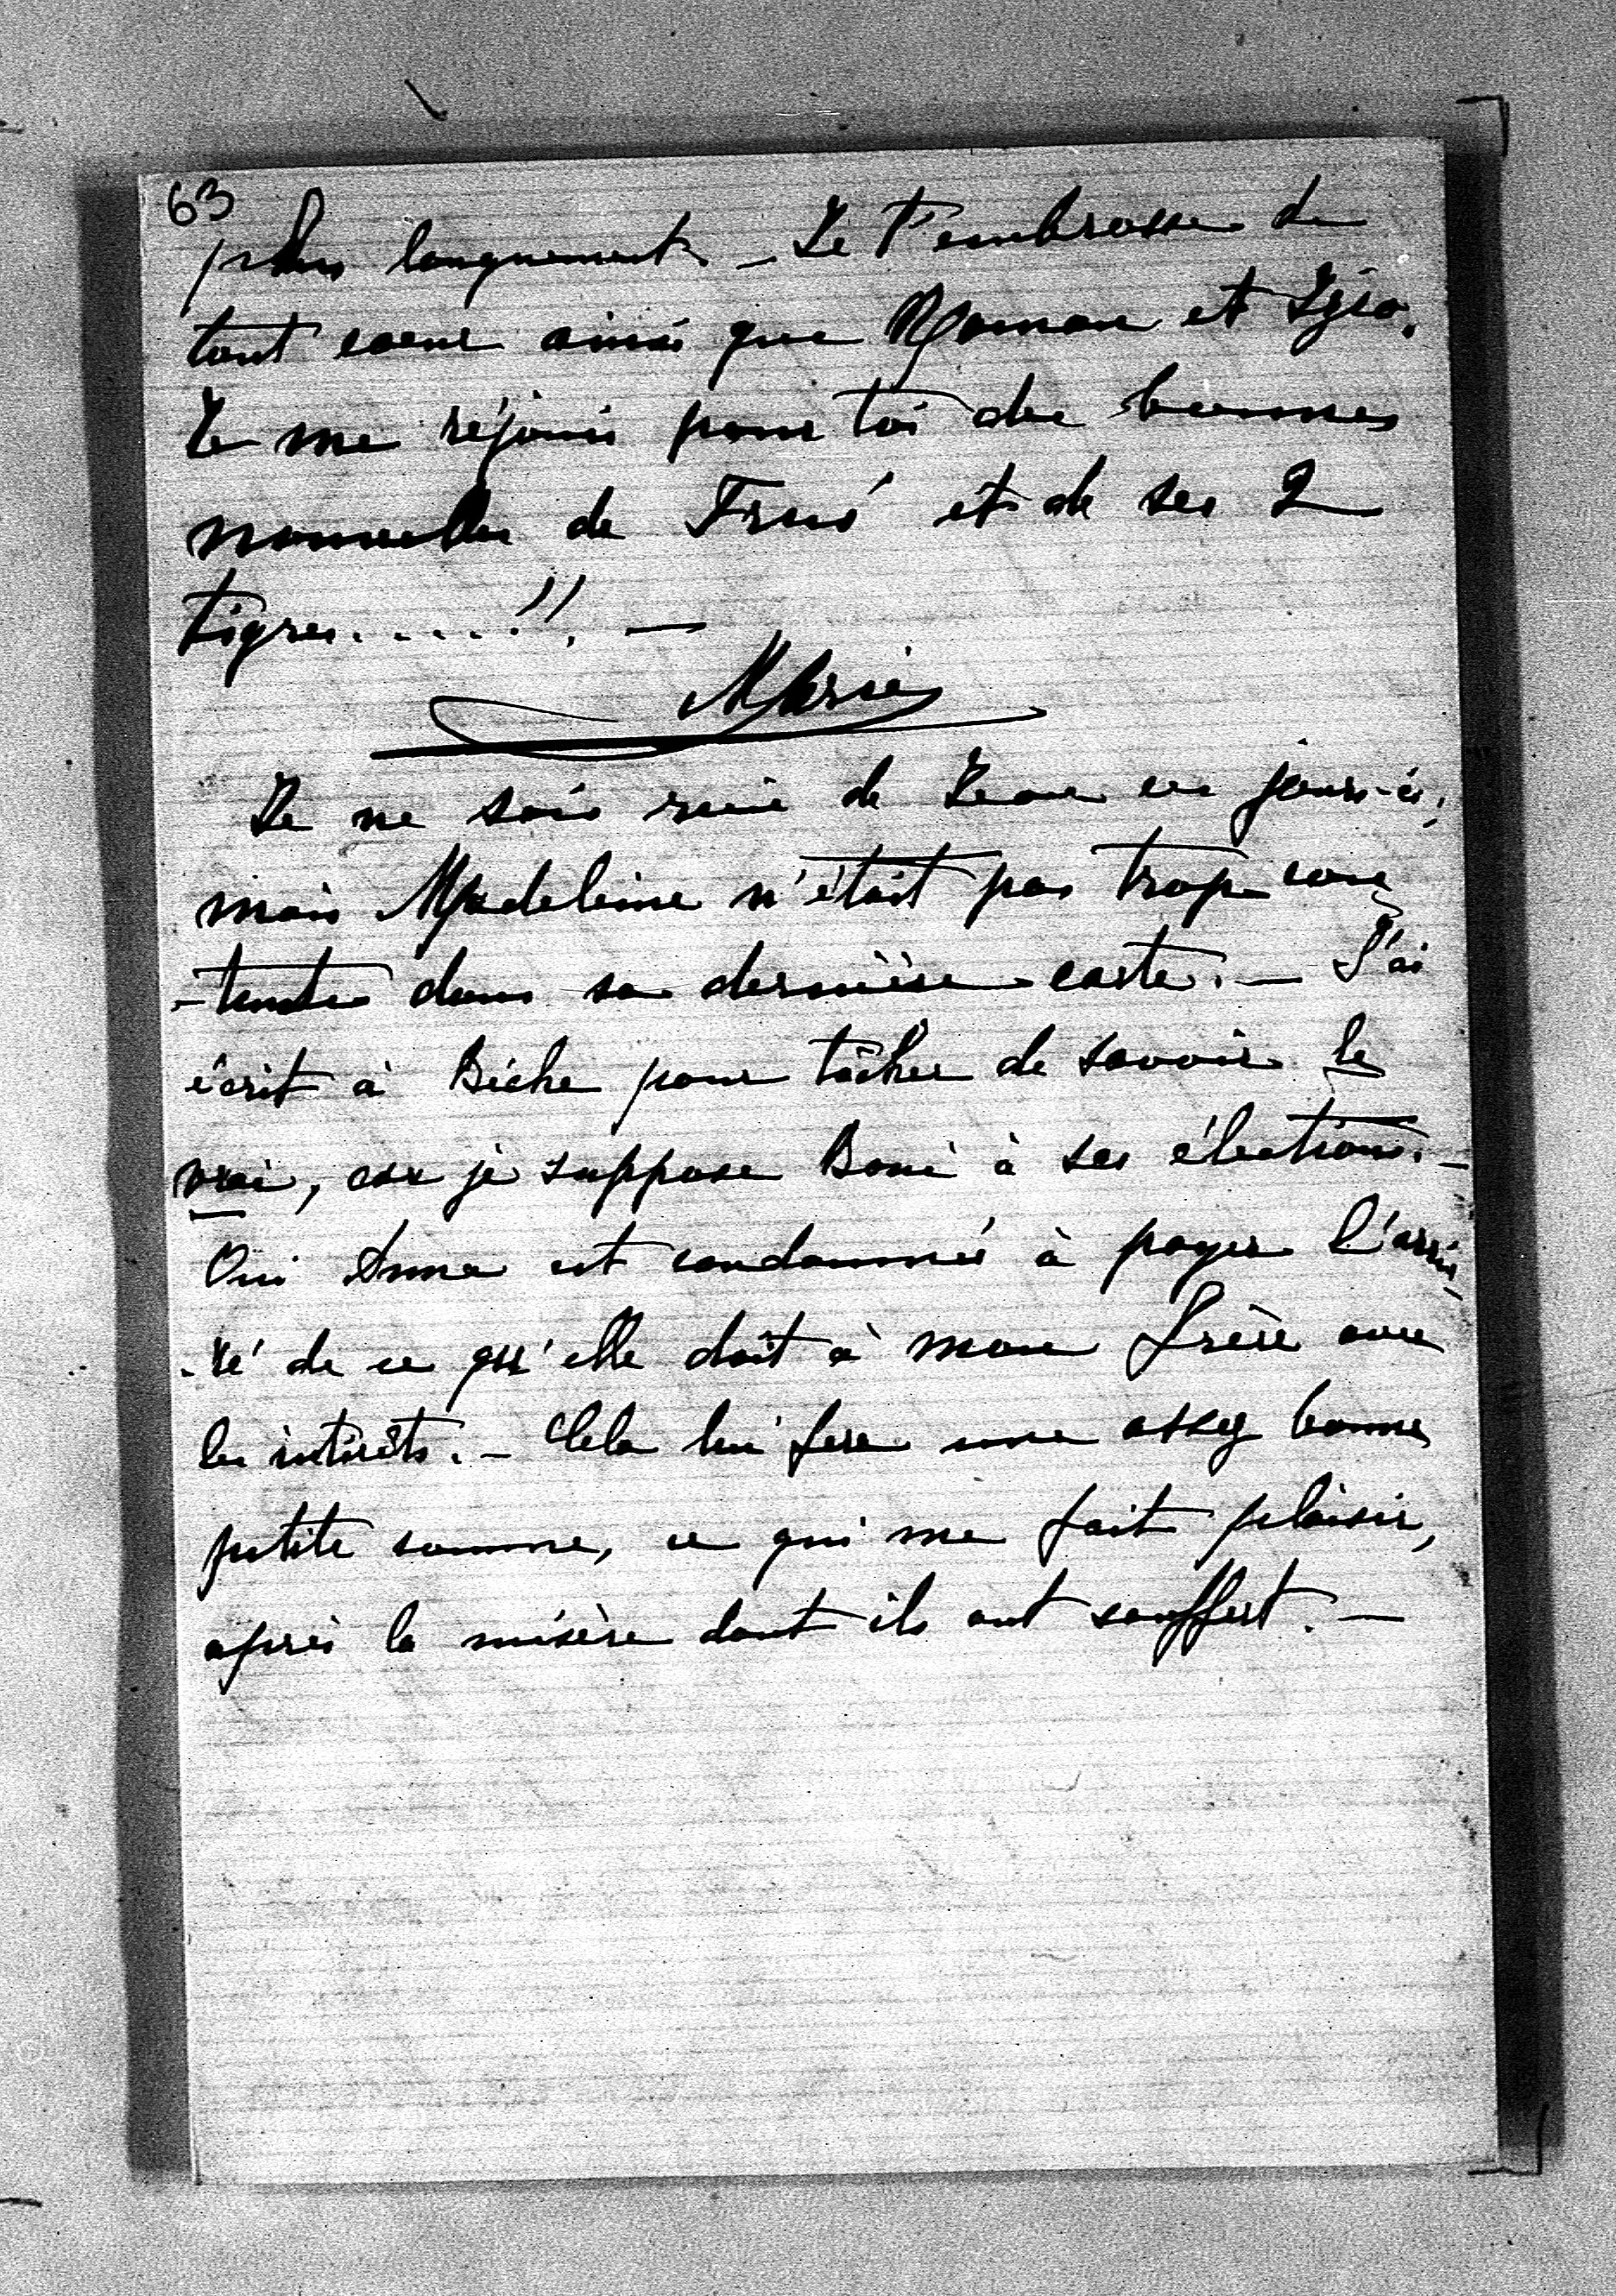 63
plus longuement. _ Je t'embrasse de
tout coeur ainsi que Maman et
Je me réjouis pour toi des bonnes
nouvelles de et de ses 2
tigres.....!!. —
Marie
Je ne sais rien de Jean ces jours-ci,
mais Madeleine n'était pas trop con-
-tente dans sa dernière carte. — J'ai
écrit à Biche pour tâcher de savoir le
vrai, car je suppose Boni à ses élections. -
Oui Anna est condamnée à payer l'arrié-
-ré de ce qu'elle doit à mon frère avec
les intérêts. - Cela lui fera une assez bonne
petite somme, ce qui me fait plaisir,
après la misère dont ils ont souffert. —